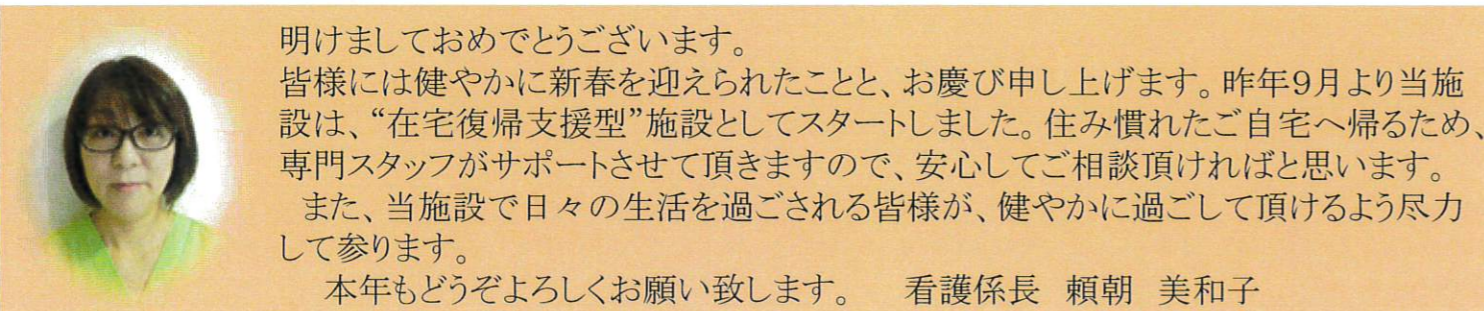 明けましておめでとうございます。
皆様には健やかに新春を迎えられたことと、お慶び申し上げます。昨年9月より当施
設は、“在宅復帰支援型”施設としてスタートしました。住み慣れたご自宅へ帰るため、
専門スタッフがサポートさせて頂きますので、安心してご相談頂ければと思います。
また、当施設で日々の生活を過ごされる皆様が、健やかに過ごして頂けるよう尽力
して参ります。
本年もどうぞよろしくお願い致します。　看護係長　頼朝　美和子